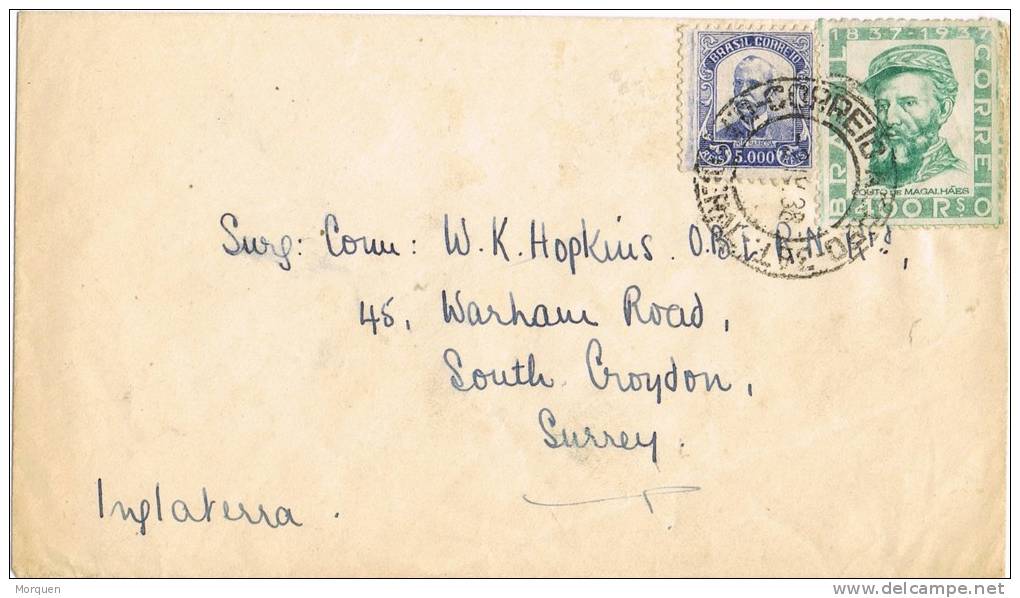 BRASIL CORREIO
RUY BARBOSA
REIS 5.000 REIS
1837-1937
BRASIL CORREIO
COUTO DE MAGALHÃES
400 RS
CORREIO
38
Surg: Com: W. K. Hopkins. O.B.E. R.N.
45, Warham Road,
South Croydon,
Surrey.
Inglaterra.
Morquen
www.delcampe.net